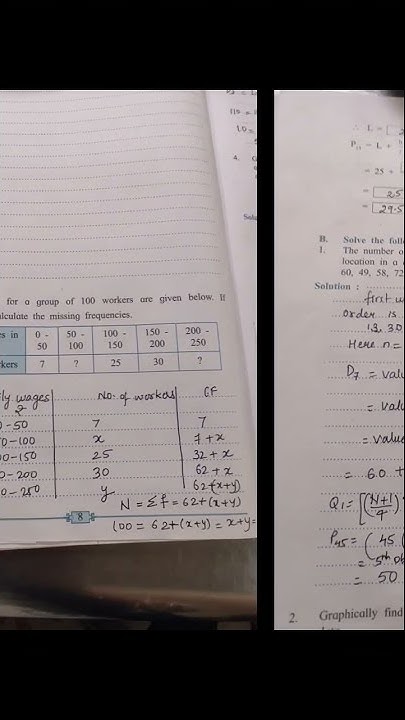 4.
for a group of 100 workers are given below. If
calculate the missing frequencies.
es in 0 - 50 50 - 100 100 - 150 150 - 200 200 - 250
kers 7 ? 25 30 ?
ly wages ₹ No. of workers CF
0-50 7 7
0-100 x 7+x
0-150 25 32+x
0-200 30 62+x
0-250 y 62+(x+y)
N = Σf = 62+(x+y)
100 = 62+(x+y) = x+y=
8
∴ L =
= 25 +
= 25
= 29.5
B. Solve the foll
1. The number a
location in a
60, 49, 58, 72
Solution :
first w
order is
13, 30
Here n =
D7 = valu
= valu
= value
= 60 +
Q1 = [(N+1)/4]
P45 = (45
= 5th ob
= 50
2. Graphically find